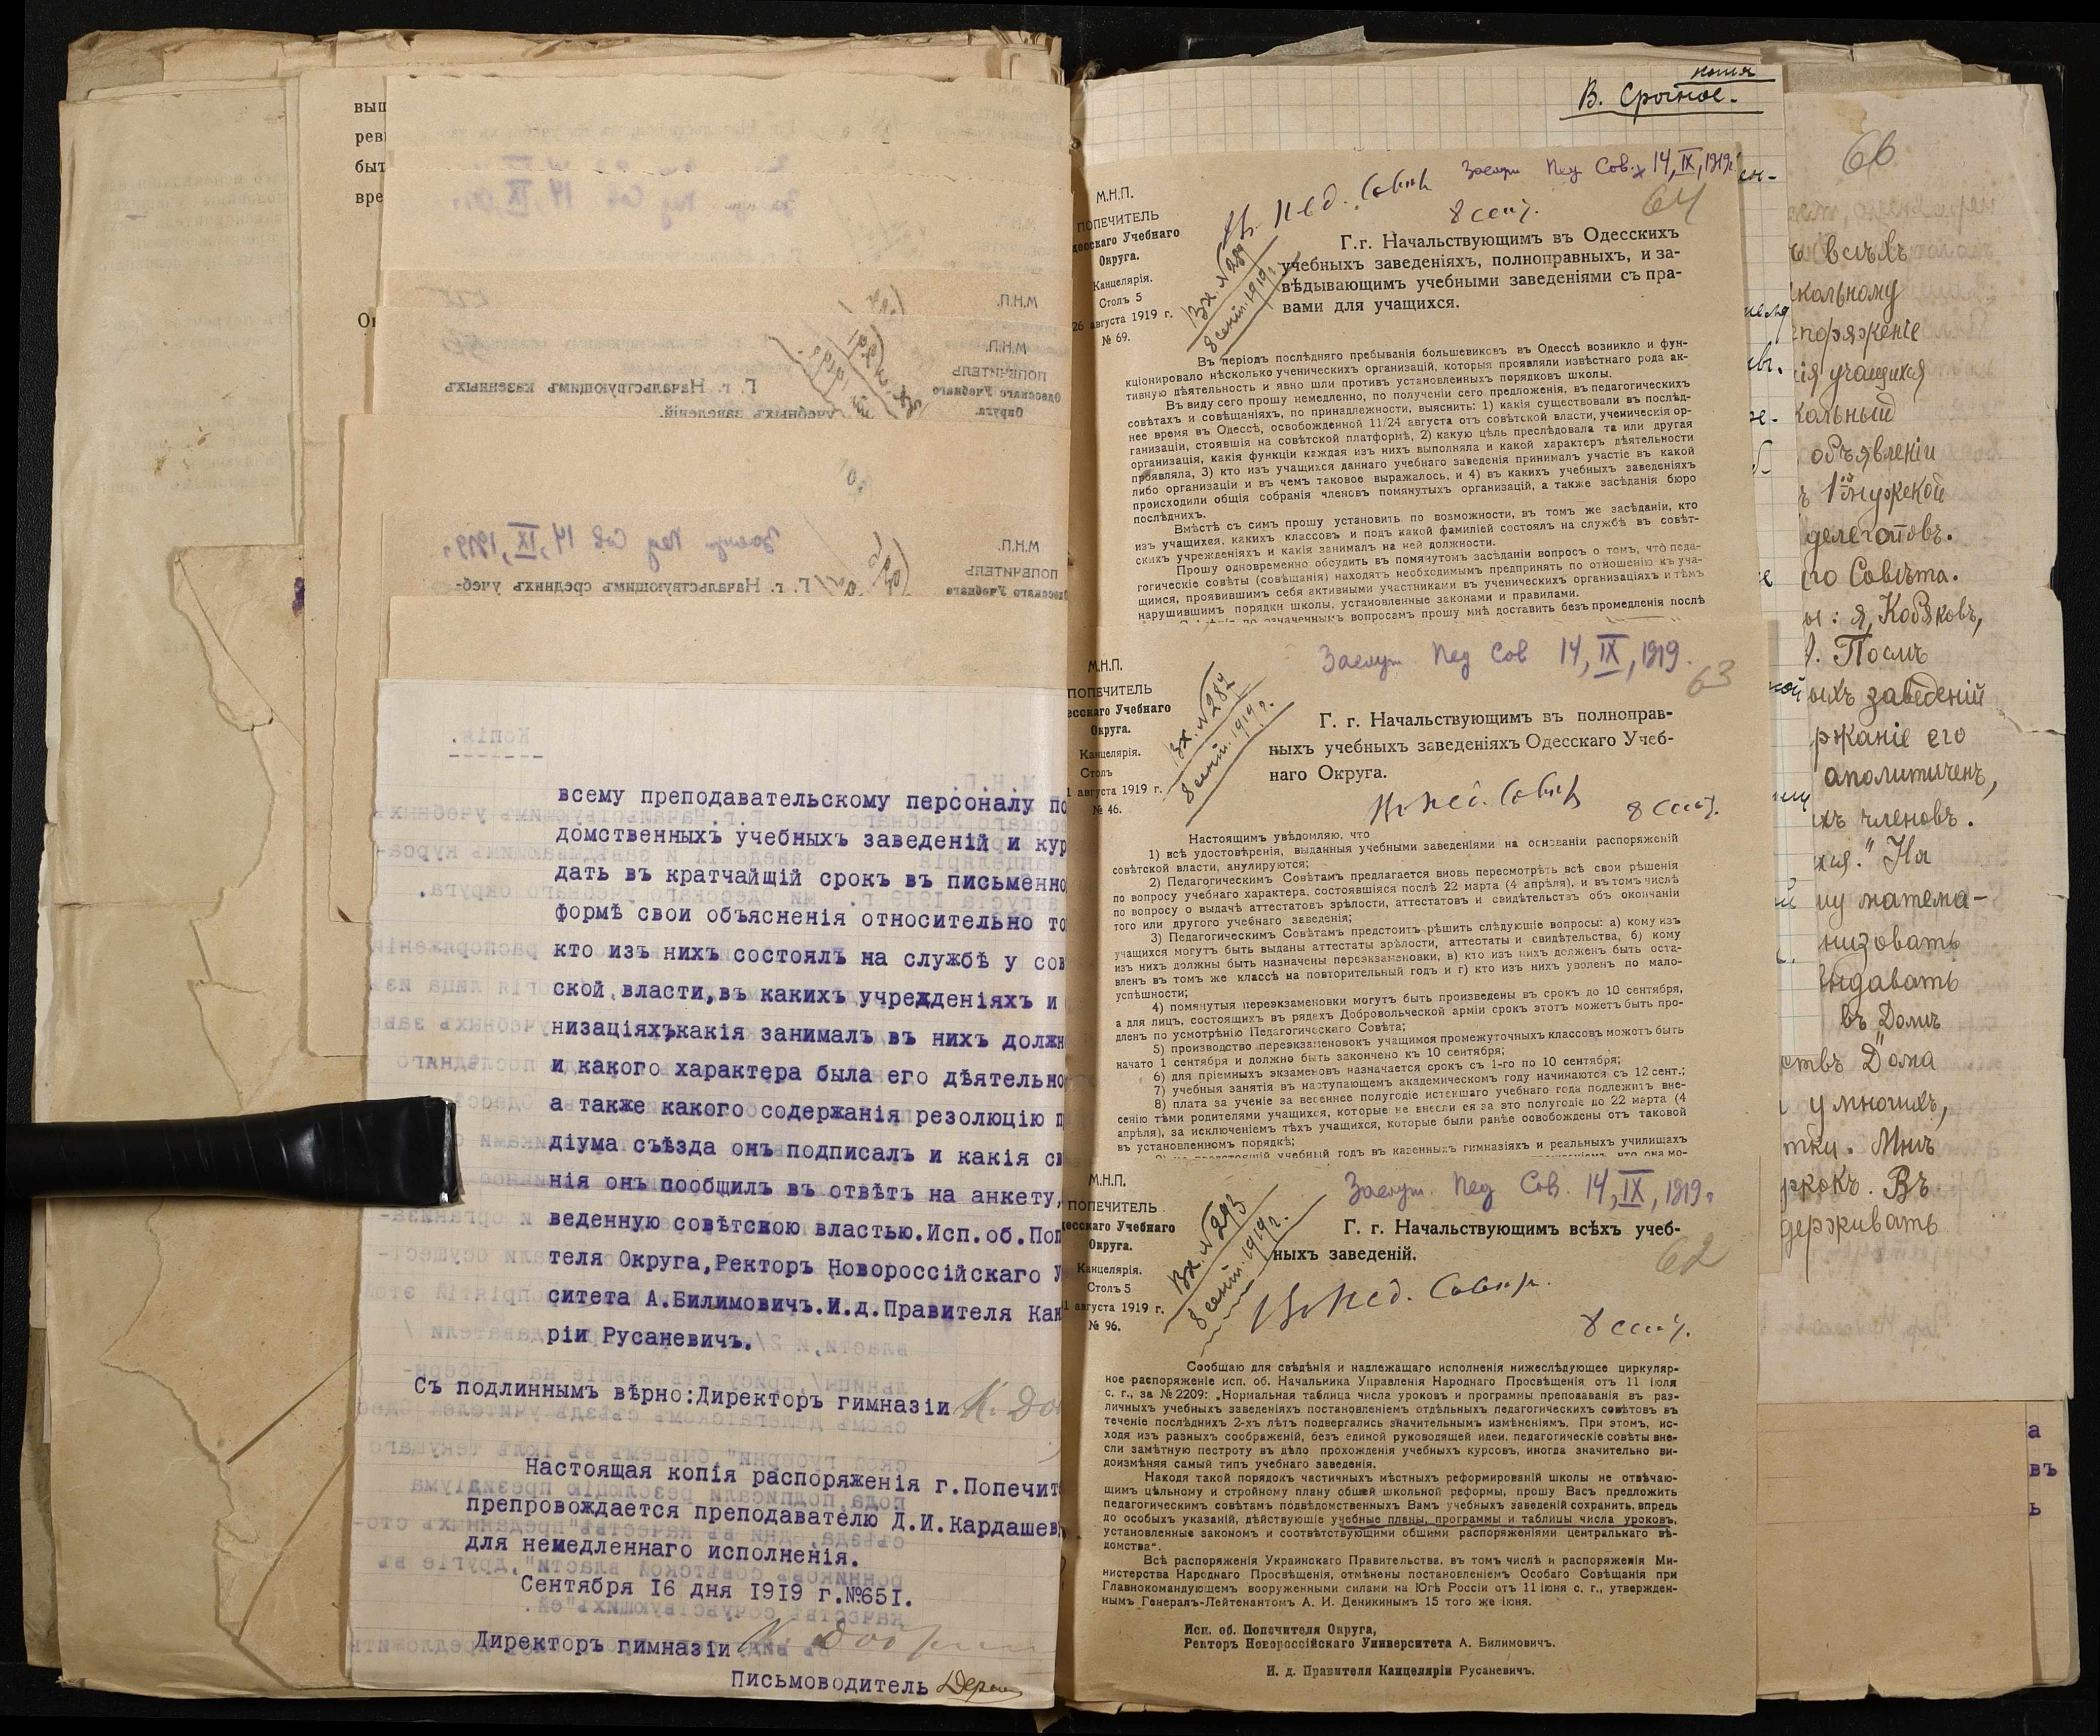 вып
рев
быт
вре
Он
всему преподавательскому персоналу по
домственныхъ учебныхъ заведеній и кур
дать въ кратчайщій срокъ въ письменно
формѣ свои объясненія относительно то
кто изъ нихъ состоялъ на службѣ у сов
ской власти,въ какихъ учрежденіяхъ и
низаціяхъ,какія занималъ въ нихъ должн
и какого характера была его дѣятельно
а также какого содержанія резолюцію п
діума съѣзда онъ подписалъ и какія св
нія онъ сообщилъ въ отвѣтъ на анкету,
веденную совѣтскою властью.Исп.об.Поп
теля Округа,Ректоръ Новороссійскаго У
ситета А.Билимовичъ.И.д.Правителя Кан
ріи Русаневичъ.
Съ подлиннымъ вѣрно:Директоръ гимназіи
Настоящая копія распоряженія г.Попечит
препровождается преподавателю Д.И.Кардашев
для немедленнаго исполненія.
Сентября 16 дня 1919 г.№651.
Директоръ гимназіи
Письмоводитель
копія
В. Срочное.
Заслуш Пед Сов. 14, IX, 1919г
Въ пед. Совѣтъ
8 сент.
64
М.Н.П.
ПОПЕЧИТЕЛЬ
десскаго Учебнаго
Округа.
Канцелярія.
Столъ 5
26 августа 1919 г.
№ 69.
Вх. № 289
8 сент. 1919 г.
Г.г. Начальствующимъ въ Одесскихъ
учебныхъ заведеніяхъ, полноправныхъ, и за-
вѣдывающимъ учебными заведеніями съ пра-
вами для учащихся.
Въ періодъ послѣдняго пребыванія большевиковъ въ Одессѣ возникло и фун-
кціонировало нѣсколько ученическихъ организацій, которыя проявляли извѣстнаго рода ак-
тивную дѣятельность и явно шли противъ установленныхъ порядковъ школы.
Въ виду сего прошу немедленно, по полученіи сего предложенія, въ педагогическихъ
совѣтахъ и совѣщаніяхъ, по принадлежности, выяснить: 1) какія существовали въ послѣд-
нее время въ Одессѣ, освобожденной 11/24 августа отъ совѣтской власти, ученическія ор-
ганизаціи, стоявшія на совѣтской платформѣ, 2) какую цѣль преслѣдовала та или другая
организація, какія функціи каждая изъ нихъ выполняла и какой характеръ дѣятельности
проявляла, 3) кто изъ учащихся даннаго учебнаго заведенія принималъ участіе въ какой
либо организаціи и въ чемъ таковое выражалось, и 4) въ какихъ учебныхъ заведеніяхъ
происходили общія собранія членовъ помянутыхъ организацій, а также засѣданія бюро
послѣднихъ.
Вмѣстѣ съ симъ прошу установить, по возможности, въ томъ же засѣданіи, кто
изъ учащихся, какихъ классовъ и подъ какой фамиліей состоялъ на службѣ въ совѣт-
скихъ учрежденіяхъ и какія занималъ на ней должности.
Прошу одновременно обсудить въ помянутомъ засѣданіи вопросъ о томъ, что педа-
гогическіе совѣты (совѣщанія) находятъ необходимымъ предпринять по отношенію къ уча-
щимся, проявившимъ себя активными участниками въ ученическихъ организаціяхъ и тѣмъ
нарушившимъ порядки школы, установленные законами и правилами.
по означеннымъ вопросамъ прошу мнѣ доставить безъ промедленія послѣ
М.Н.П.
ПОПЕЧИТЕЛЬ
есскаго Учебнаго
Округа.
Канцелярія.
Столъ
1 августа 1919 г.
№ 46.
Вх. № 287
8 сент. 1919 г.
Заслуш Пед Сов 14, IX, 1919.
63
Г. г. Начальствующимъ въ полноправ-
ныхъ учебныхъ заведеніяхъ Одесскаго Учеб-
наго Округа.
Въ пед. Совѣтъ
8 сент.
Настоящимъ увѣдомляю, что
1) всѣ удостовѣренія, выданныя учебными заведеніями на основаніи распоряженій
совѣтской власти, анулируются;
2) Педагогическимъ Совѣтамъ предлагается вновь пересмотрѣть всѣ свои рѣшенія
по вопросу учебнаго характера, состоявшіяся послѣ 22 марта (4 апрѣля), и въ томъ числѣ
по вопросу о выдачѣ аттестатовъ зрѣлости, аттестатовъ и свидѣтельствъ объ окончаніи
того или другого учебнаго заведенія;
3) Педагогическимъ Совѣтамъ предстоитъ рѣшить слѣдующіе вопросы: а) кому изъ
учащихся могутъ быть выданы аттестаты зрѣлости, аттестаты и свидѣтельства, б) кому
изъ нихъ должны быть назначены переэкзаменовки, в) кто изъ нихъ долженъ быть оста-
вленъ въ томъ же классѣ на повторительный годъ и г) кто изъ нихъ уволенъ по мало-
успѣшности;
4) помянутыя переэкзаменовки могутъ быть произведены въ срокъ до 10 сентября,
а для лицъ, состоящихъ въ рядахъ Добровольческой арміи срокъ этотъ можетъ быть про-
дленъ по усмотрѣнію Педагогическаго Совѣта;
5) производство переэкзаменовокъ учащимся промежуточныхъ классовъ можотъ быть
начато 1 сентября и должно быть закончено къ 10 сентября;
6) для пріемныхъ экзаменовъ назначается срокъ съ 1-го по 10 сентября;
7) учебныя занятія въ наступающемъ академическомъ году начинаются съ 12 сент.;
8) плата за ученіе за весеннее полугодіе истекшаго учебнаго года подлежитъ вне-
сенію тѣми родителями учащихся, которые не внесли ея за это полугодіе до 22 марта (4
апрѣля), за исключеніемъ тѣхъ учащихся, которые были ранѣе освобождены отъ таковой
въ установленномъ порядкѣ;
предстоящій учебный годъ въ казенныхъ гимназіяхъ и реальныхъ училищахъ
М.Н.П.
ПОПЕЧИТЕЛЬ
десскаго Учебнаго
Округа.
Канцелярія.
Столъ 5
1 августа 1919 г.
№ 96.
Вх. № 293
8 сент. 1919 г.
Заслуш. Пед Сов. 14, IX, 1919г
Г. г. Начальствующимъ всѣхъ учеб-
ныхъ заведеній.
62
Въ пед. Совѣтъ.
8 сент.
Сообщаю для свѣдѣнія и надлежащаго исполненія нижеслѣдующее циркуляр-
ное распоряженіе исп. об. Начальника Управленія Народнаго Просвѣщенія отъ 11 іюля
с. г., за № 2209: „Нормальная таблица числа уроковъ и программы преподаванія въ раз-
личныхъ учебныхъ заведеніяхъ постановленіемъ отдѣльныхъ педагогическихъ совѣтовъ въ
теченіе послѣднихъ 2-хъ лѣтъ подвергались значительнымъ измѣненіямъ. При этомъ, ис-
ходя изъ разныхъ соображеній, безъ единой руководящей идеи, педагогическіе совѣты вне-
сли замѣтную пестроту въ дѣло прохожденія учебныхъ курсовъ, иногда значительно ви-
доизмѣняя самый типъ учебнаго заведенія.
Находя такой порядокъ частичныхъ мѣстныхъ реформированій школы не отвѣчаю-
щимъ цѣльному и стройному плану общей школьной реформы, прошу Васъ предложить
педагогическимъ совѣтамъ подвѣдомственныхъ Вамъ учебныхъ заведеній сохранить, впредь
до особыхъ указаній, дѣйствующіе учебные планы, программы и таблицы числа уроковъ,
установленные закономъ и соотвѣтствующими общими распоряженіями центральнаго вѣ-
домства“.
Всѣ распоряженія Украинскаго Правительства, въ томъ числѣ и распоряженія Ми-
нистерства Народнаго Просвѣщенія, отмѣнены постановленіемъ Особаго Совѣщанія при
Главнокомандующемъ вооруженными силами на Югѣ Россіи отъ 11 іюня с. г., утвержден-
нымъ Генералъ-Лейтенантомъ А. И. Деникинымъ 15 того же іюня.
Исп. об. Попечителя Округа,
Ректоръ Новороссійскаго Университета А. Билимовичъ.
И. д. Правителя Канцеляріи Русаневичъ.
66
всѣхъ
кольному
споряженіе
ія учащихся
кольный
объявленіи
ъ 1й мужской
делегатовъ.
го Совѣта.
ы: я, Кобяковъ,
Послѣ
ыхъ заведеній
ржаніе его
аполитиченъ,
хъ членовъ.
хся." На
му матема-
низовать
ыдавать
въ Домѣ
ствъ "Дома
у многихъ,
тки. Мнѣ
ржокъ. Въ
держивать
а
въ
ь